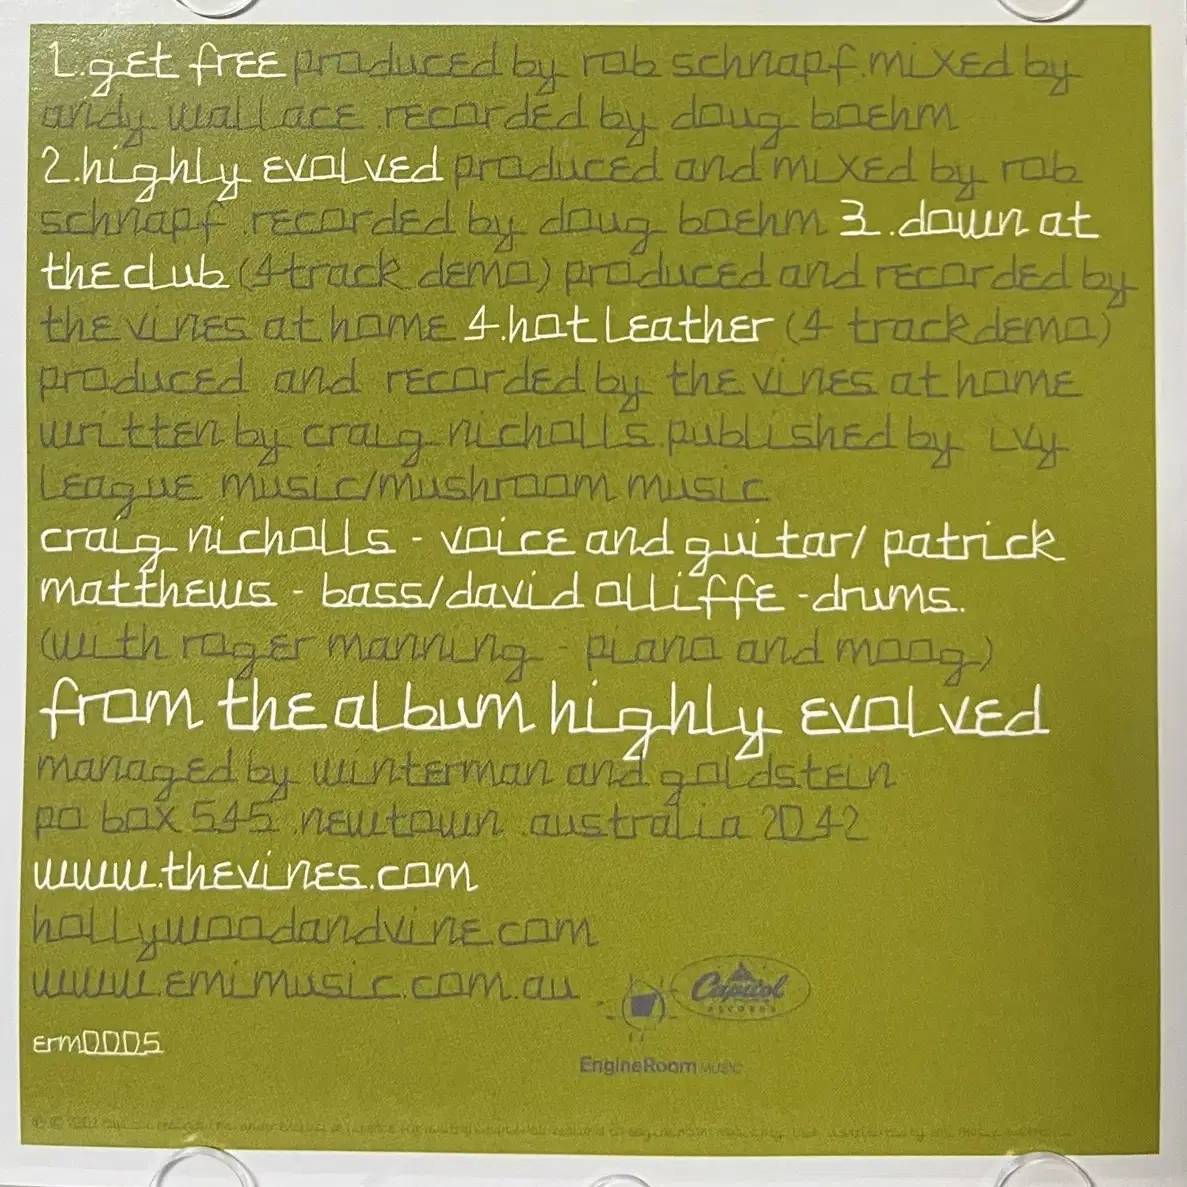 1.get free produced by rob schnapf.mixed by
andy wallace recorded by doug boehm
2.highly evolved produced and mixed by rob
schnapf.recorded by doug boehm 3.down at
the club (4 track demo) produced and recorded by
the vines at home 4.hot leather (4 track demo)
produced and recorded by the vines at home
written by craig nicholls.published by ivy
league music/mushroom music
craig nicholls - voice and guitar/ patrick
matthews - bass/david olliffe -drums.
(with roger manning - piano and moog)
from the album highly evolved
managed by winterman and goldstein
po box 545 .newtown .australia 2042
www.thevines.com
hollywoodandvine.com
www.emimusic.com.au
Capitol
RECORDS
erm0005
EngineRoom MUSIC
2002